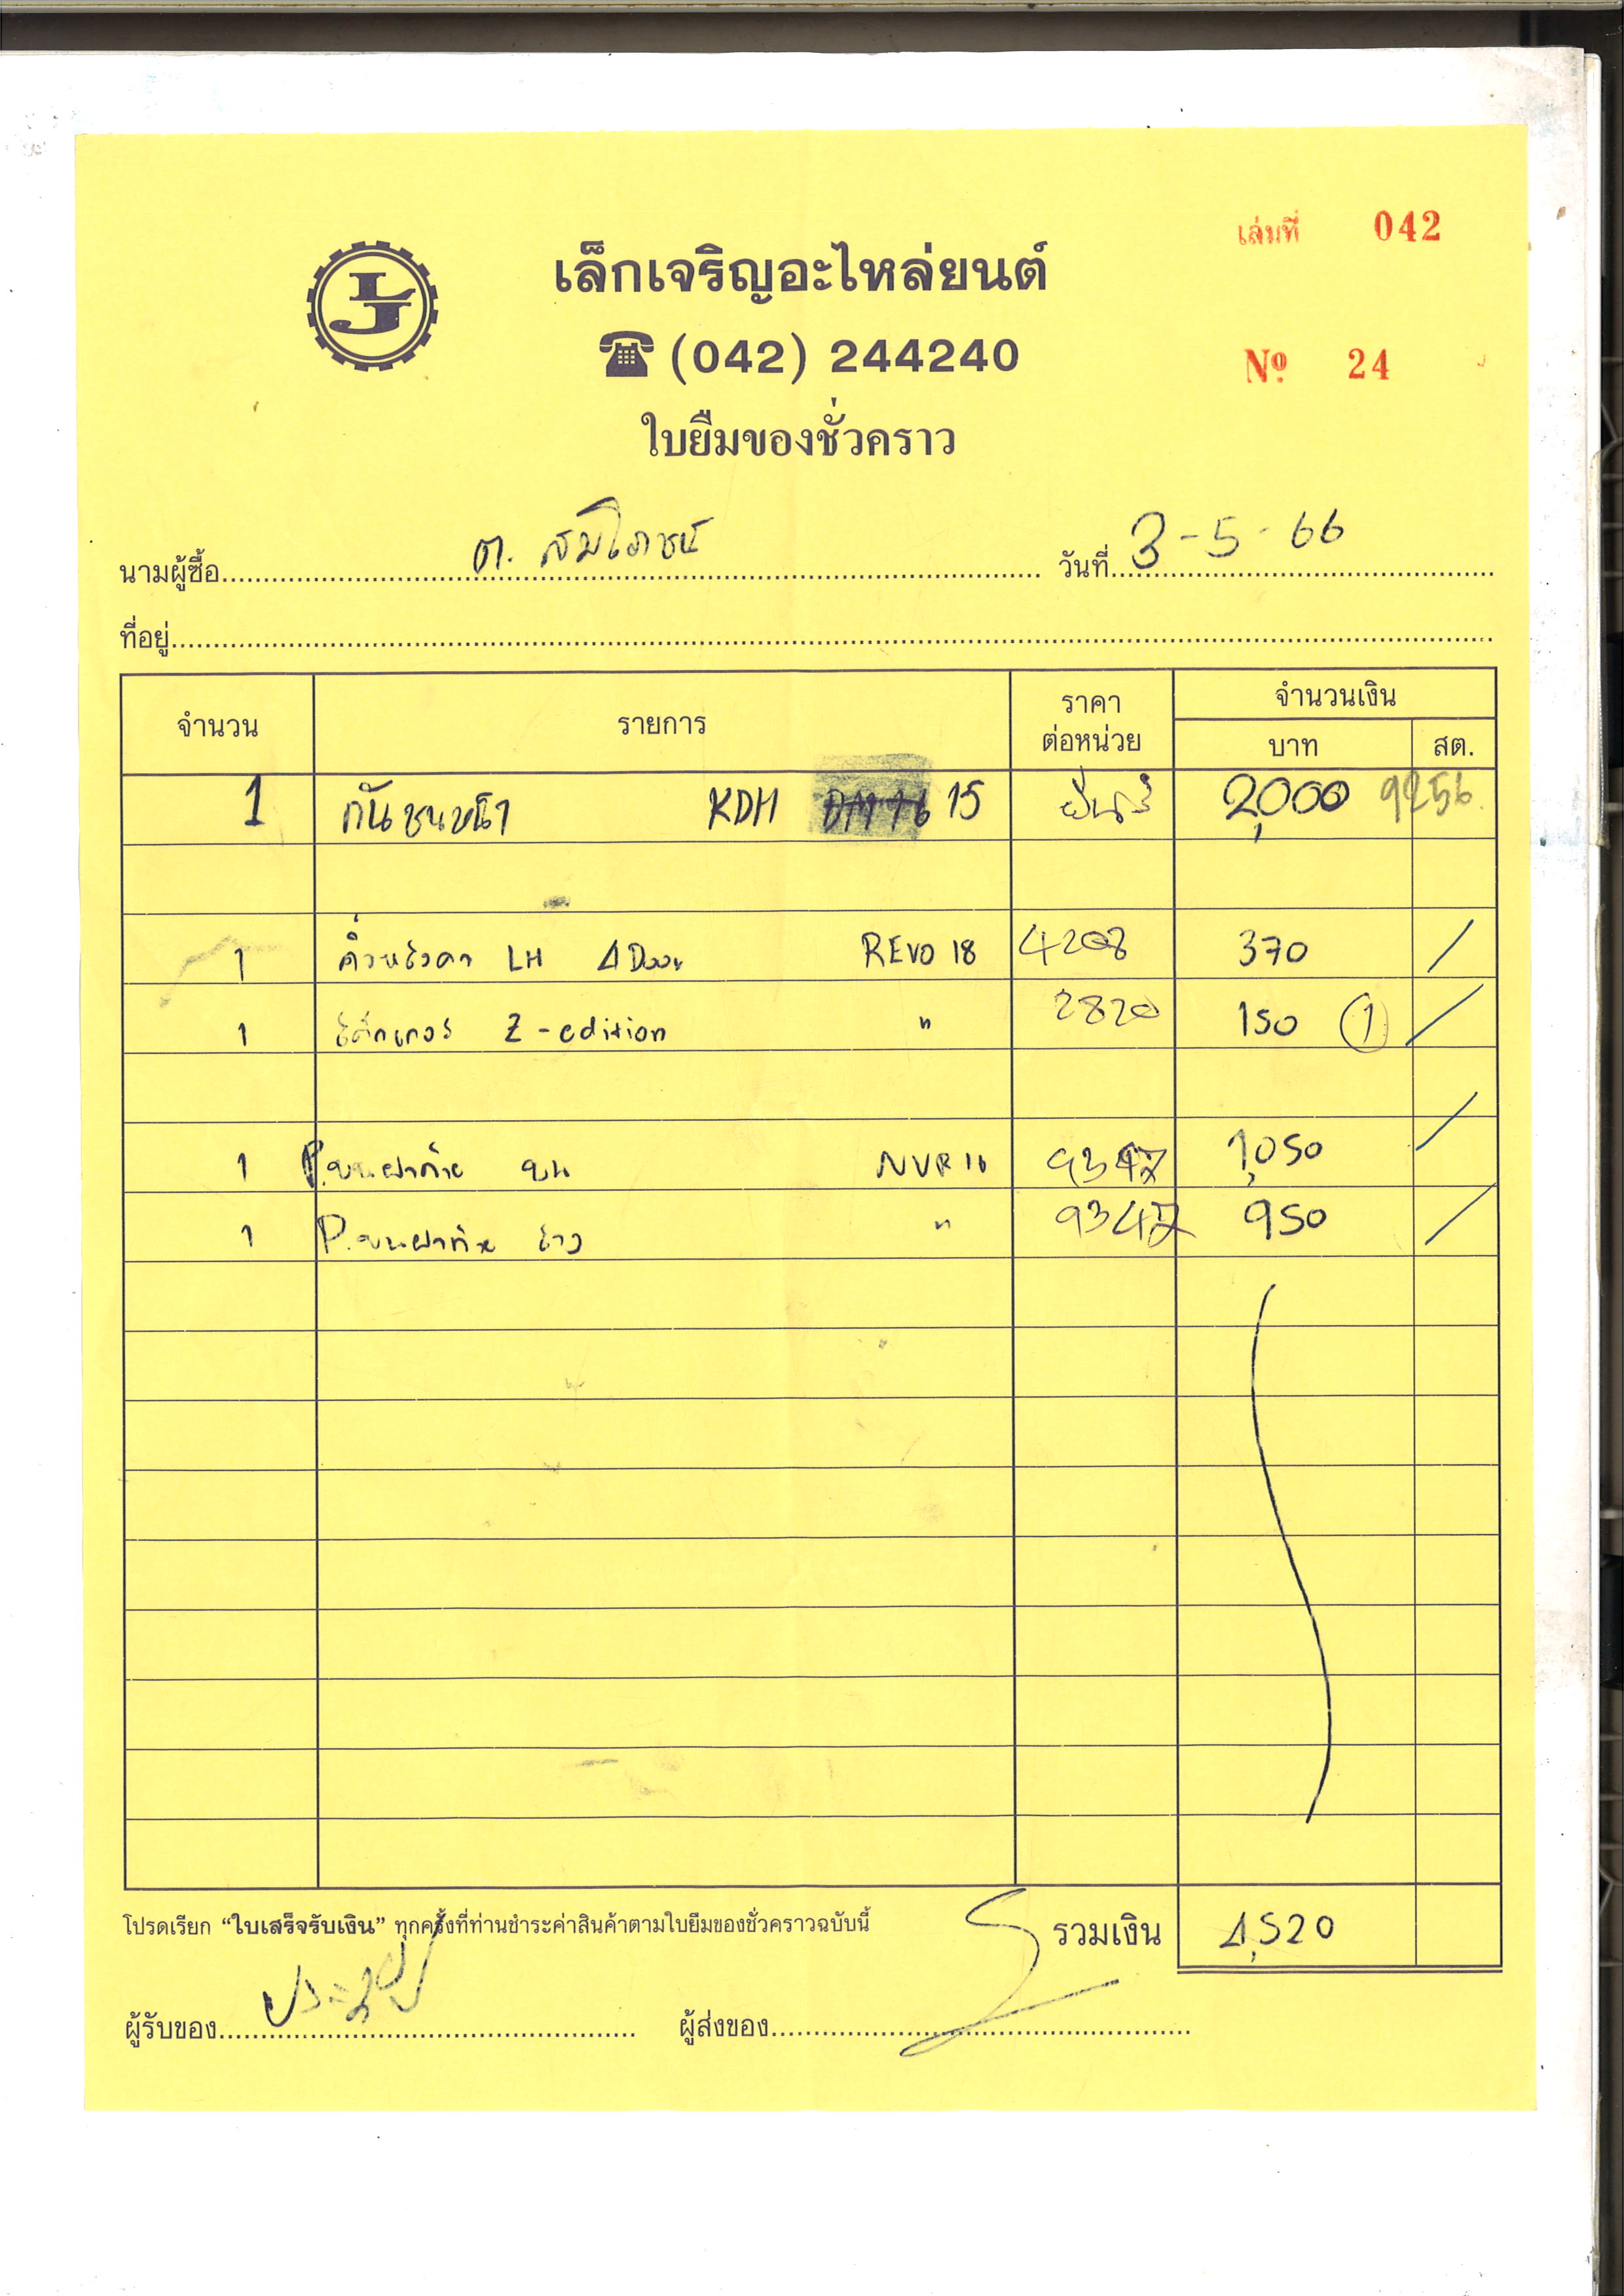 เล่มที่ 042
LJ
เล็กเจริญอะไหล่ยนต์
(042) 244240
Nº 24
ใบยืมของชั่วคราว
นามผู้ซื้อ ต. สมโภชน์ วันที่ 3-5-66
ที่อยู่
จำนวน รายการ ราคาต่อหน่วย จำนวนเงิน
บาท สต.
1 กันชนหน้า KDH 15 2,000 9256
1 คิ้วหลังคา LH 4Door REVO 18 4208 370 /
1 สติ๊กเกอร์ Z-edition " 2820 150 (1) /
1 P.บนฝาท้าย บน NVR 16 1,050 /
1 P.บนฝาท้าย ล่าง " 9347 950 /
โปรดเรียก “ใบเสร็จรับเงิน” ทุกครั้งที่ท่านชำระค่าสินค้าตามใบยืมของชั่วคราวฉบับนี้ รวมเงิน 4,520
ผู้รับของ ผู้ส่งของ